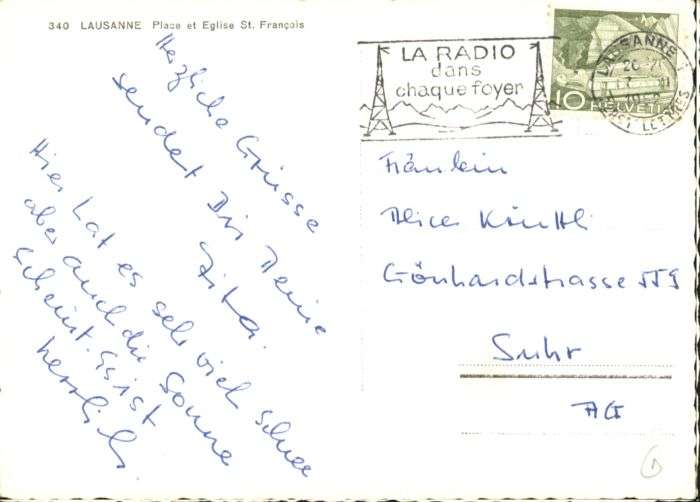 340 LAUSANNE Place et Eglise St. François
LA RADIO
dans
chaque foyer
LAUSANNE 1
10 HELVETIA
Herzliche Grüsse
sendet Dir Deine
Zita.
Hier hat es sehr viel schnee
aber auch die Sonne
scheint. Es ist
herrlich.
Fräulein
Alice
Gönhardstrasse
Suhr
AG